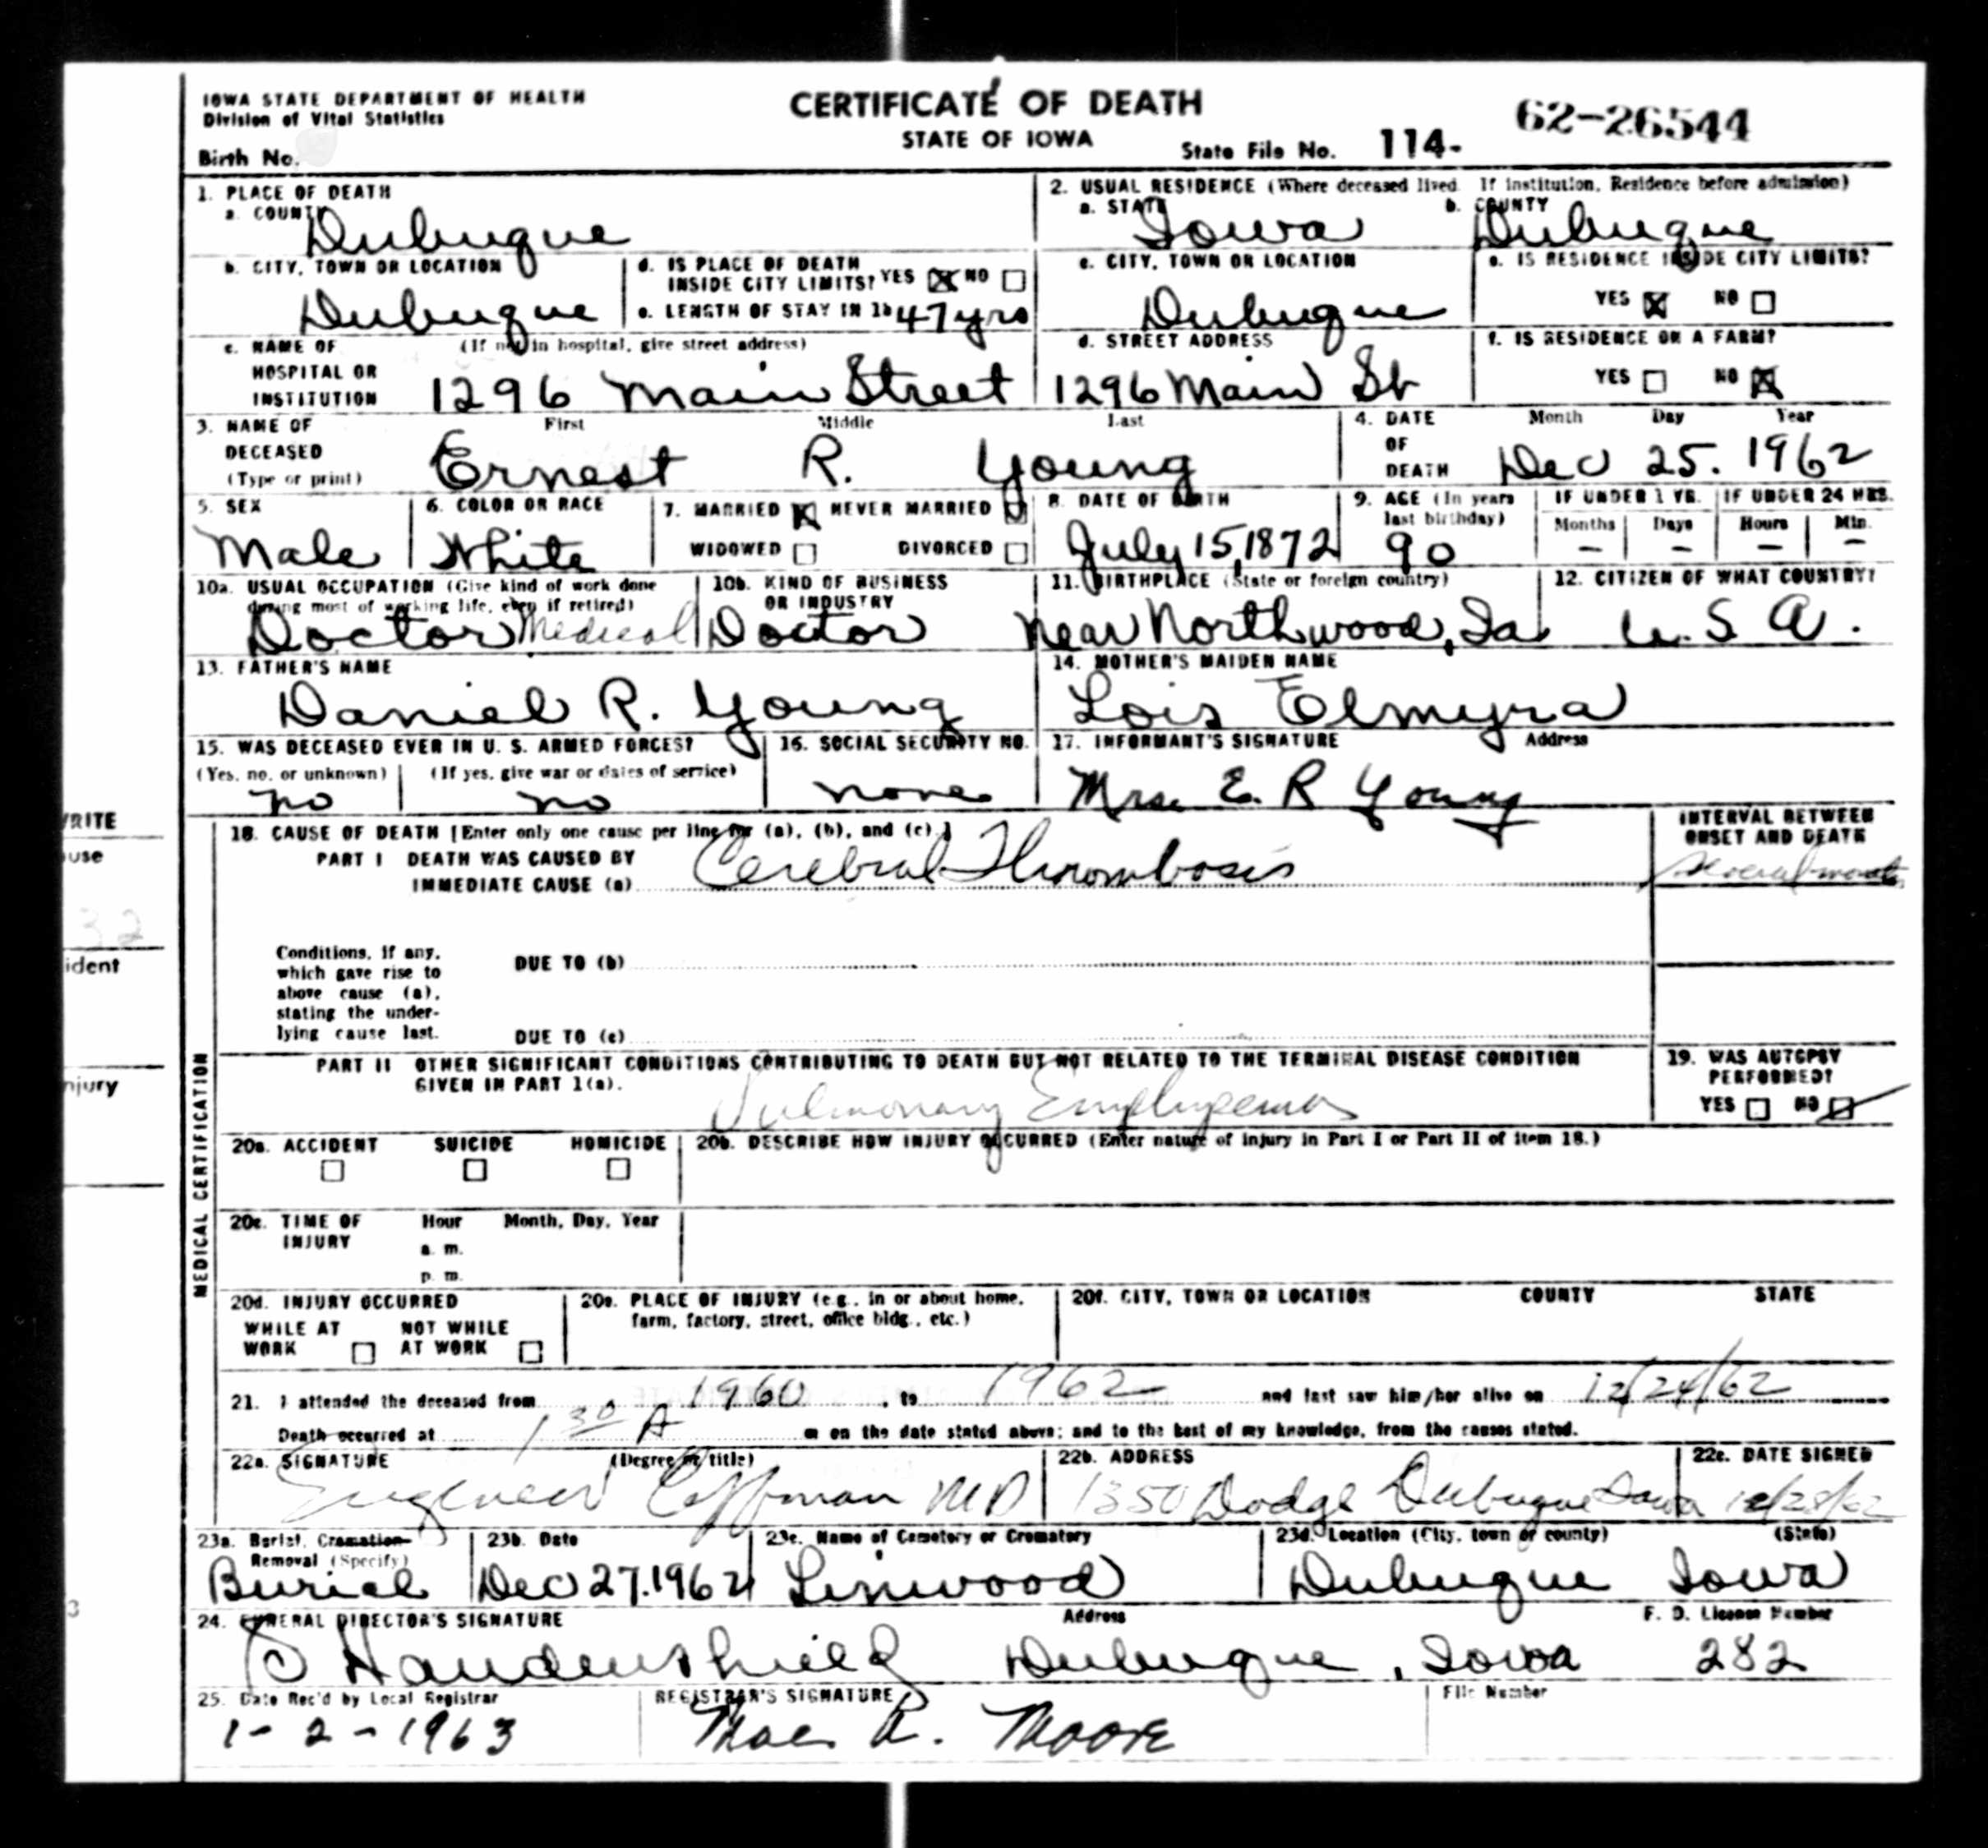 IOWA STATE DEPARTMENT OF HEALTH
Division of Vital Statistics
Birth No.
CERTIFICATE OF DEATH
STATE OF IOWA
State File No. 114-
62-26544
1. PLACE OF DEATH
a. COUNTY
Dubuque
2. USUAL RESIDENCE (Where deceased lived. If institution, Residence before admission)
a. STATE b. COUNTY
Iowa Dubuque
b. CITY, TOWN OR LOCATION
Dubuque
d. IS PLACE OF DEATH
INSIDE CITY LIMITS? YES NO
e. LENGTH OF STAY IN 1b 47 yrs
c. CITY, TOWN OR LOCATION
Dubuque
e. IS RESIDENCE INSIDE CITY LIMITS?
YES NO
c. NAME OF (If not in hospital, give street address)
HOSPITAL OR
INSTITUTION 1296 Main Street
d. STREET ADDRESS
1296 Main St
f. IS RESIDENCE ON A FARM?
YES NO
3. NAME OF First Middle Last
DECEASED
(Type or print) Ernest R. Young
4. DATE Month Day Year
OF
DEATH Dec 25. 1962
5. SEX
Male
6. COLOR OR RACE
White
7. MARRIED NEVER MARRIED
WIDOWED DIVORCED
8. DATE OF BIRTH
July 15, 1872
9. AGE (In years
last birthday)
90
IF UNDER 1 YR. IF UNDER 24 HRS.
Months Days Hours Min.
- - - -
10a. USUAL OCCUPATION (Give kind of work done
during most of working life, even if retired)
Doctor Medical
10b. KIND OF BUSINESS
OR INDUSTRY
Doctor
11. BIRTHPLACE (State or foreign country)
Near Northwood, Ia
12. CITIZEN OF WHAT COUNTRY?
U. S A.
13. FATHER'S NAME
Daniel R. Young
14. MOTHER'S MAIDEN NAME
Lois Elmyra
15. WAS DECEASED EVER IN U. S. ARMED FORCES?
(Yes, no, or unknown) (If yes, give war or dates of service)
no no
16. SOCIAL SECURITY NO.
none
17. INFORMANT'S SIGNATURE Address
Mrs. E. R Young
WRITE
use
32
ident
njury
3
MEDICAL CERTIFICATION
18. CAUSE OF DEATH [Enter only one cause per line for (a), (b), and (c).]
PART I DEATH WAS CAUSED BY
IMMEDIATE CAUSE (a) Cerebral Thrombosis
INTERVAL BETWEEN
ONSET AND DEATH
several months
Conditions, if any,
which gave rise to
above cause (a),
stating the under-
lying cause last.
DUE TO (b)
DUE TO (c)
PART II OTHER SIGNIFICANT CONDITIONS CONTRIBUTING TO DEATH BUT NOT RELATED TO THE TERMINAL DISEASE CONDITION
GIVEN IN PART I(a).
Pulmonary Emphysema
19. WAS AUTOPSY
PERFORMED?
YES NO
20a. ACCIDENT SUICIDE HOMICIDE
20b. DESCRIBE HOW INJURY OCCURRED (Enter nature of injury in Part I or Part II of item 18.)
20c. TIME OF Hour Month, Day, Year
INJURY a. m.
p. m.
20d. INJURY OCCURRED
WHILE AT NOT WHILE
WORK AT WORK
20e. PLACE OF INJURY (e.g., in or about home,
farm, factory, street, office bldg., etc.)
20f. CITY, TOWN OR LOCATION COUNTY STATE
21. I attended the deceased from 1960, to 1962 and last saw him/her alive on 12/24/62
Death occurred at 1 30 A m on the date stated above; and to the best of my knowledge, from the causes stated.
22a. SIGNATURE (Degree or title)
Coffman MD
22b. ADDRESS
1350 Dodge Dubuque Iowa
22c. DATE SIGNED
12/28/62
23a. Burial, Cremation
Removal (Specify)
Burial
23b. Date
Dec 27. 1962
23c. Name of Cemetery or Crematory
Linwood
23d. Location (City, town or county) (State)
Dubuque Iowa
24. FUNERAL DIRECTOR'S SIGNATURE Address F. D. License Number
Haudenshield Dubuque, Iowa 282
25. Date Rec'd by Local Registrar
1-2-1963
REGISTRAR'S SIGNATURE
Mae R. Moore
File Number